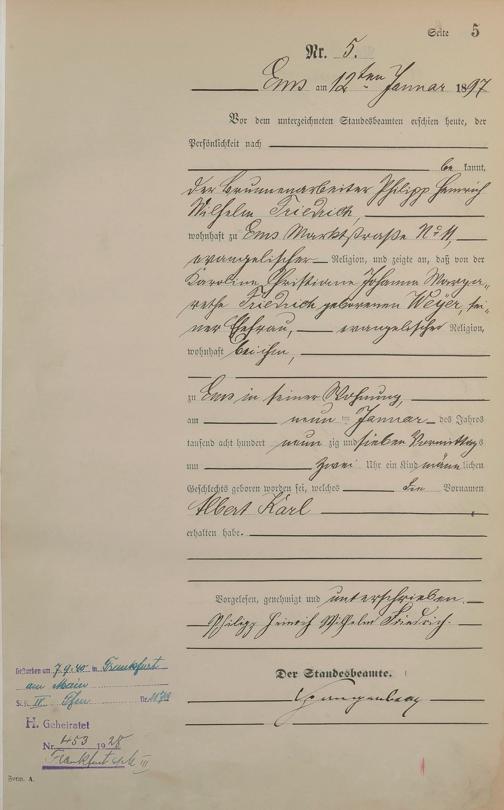 Seite 5
Nr. 5.
Ems am 12ten Januar 1897
Vor dem unterzeichneten Standesbeamten erschien heute, der
Persönlichkeit nach
be kannt,
der Brunnenarbeiter Philipp Heinrich
Wilhelm Friedrich,
wohnhaft zu Ems Marktstraße No 11,
evangelischer Religion, und zeigte an, daß von der
Karoline Christiane Johanna Marga-
rethe Friedrich geborenen Weyer, sei-
ner Ehefrau, evangelischer Religion,
wohnhaft bei ihm,
zu Ems in seiner Wohnung,
am neun ten Januar des Jahres
tausend acht hundert neun zig und sieben Vormittags
um zwei Uhr ein Kind männlichen
Geschlechts geboren worden sei, welches die Vornamen
Albert Karl
erhalten habe.
Vorgelesen, genehmigt und unterschrieben.
Philipp Heinrich Wilhelm Friedrich.
Der Standesbeamte.
Gestorben am 7.9.40 in Frankfurt
am Main
St. A. Nr.
H. Geheiratet
Nr. 453 1928
Frankfurt III
Form. A.